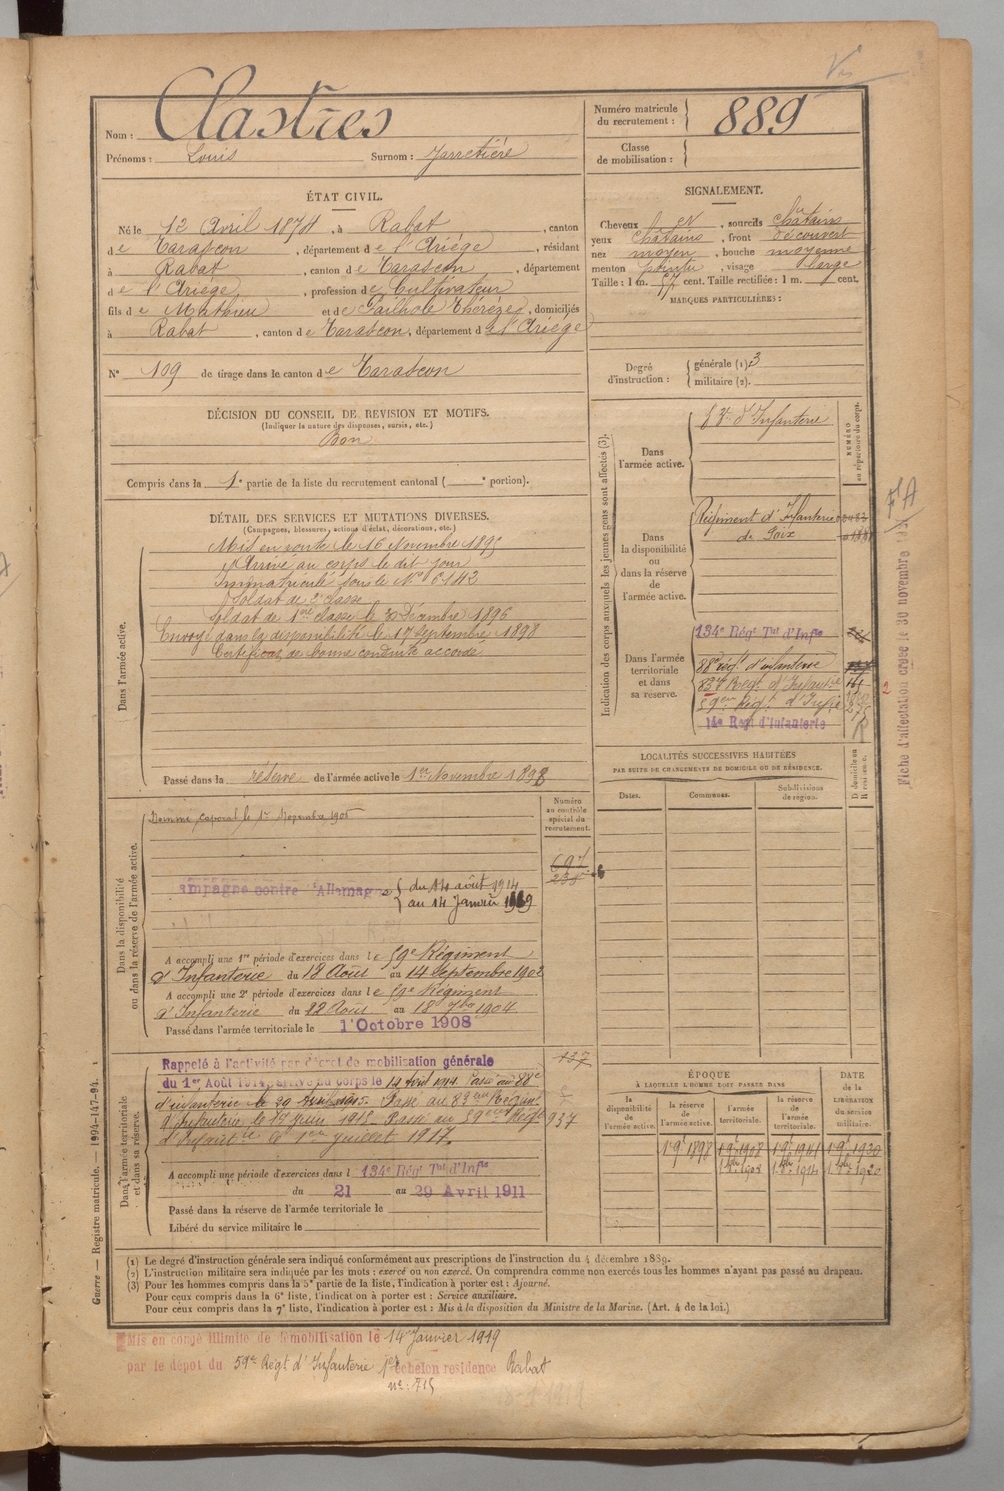 Nom : Clastres
Prénoms : Louis Surnom : Jarretière
Numéro matricule du recrutement : 889
Classe de mobilisation :
ÉTAT CIVIL.
Né le 12 Avril 1874, à Rabat, canton
de Tarascon, département de l'Ariège, résidant
à Rabat, canton de Tarascon, département
de l'Ariège, profession de Cultivateur
fils de Mathieu et de Pailhole Thérèze, domiciliés
à Rabat, canton de Tarascon, département de l'Ariège
N° 109 de tirage dans le canton de Tarascon
SIGNALEMENT.
Cheveux, sourcils châtains
yeux châtains, front découvert
nez moyen, bouche moyenne
menton pointu, visage large
Taille : 1 m. 57 cent. Taille rectifiée : 1 m. cent.
MARQUES PARTICULIÈRES :
Degré d'instruction : générale (1). 3
militaire (2).
DÉCISION DU CONSEIL DE REVISION ET MOTIFS.
(Indiquer la nature des dispenses, sursis, etc.)
Bon
Compris dans la 1e partie de la liste du recrutement cantonal ( e portion).
DÉTAIL DES SERVICES ET MUTATIONS DIVERSES.
(Campagnes, blessures, actions d'éclat, décorations, etc.)
Dans l'armée active.
Mis en route le 16 Novembre 1895
Arrivé au corps le dit jour
Immatriculé sous le N° 6142
Soldat de 2e classe
Soldat de 1ère classe le 30 Décembre 1896
Envoyé dans la disponibilité le 18 Septembre 1898
Certificat de bonne conduite accordé
Passé dans la réserve de l'armée active le 1er Novembre 1898
Indication des corps auxquels les jeunes gens sont affectés (3).
NUMÉRO au répertoire du corps.
Dans l'armée active. d'Infanterie
Dans la disponibilité ou dans la réserve de l'armée active.
Régiment d'Infanterie
de Foix
Dans l'armée territoriale et dans sa réserve.
134e Régt Tal d'Infie
88e régt d'infanterie
83e Régt d'Infanterie
59e Régt d'Infie
14e Régt d'Infanterie
Fiche d'affectation créée le 30 novembre
LOCALITÉS SUCCESSIVES HABITÉES
PAR SUITE DE CHANGEMENTS DE DOMICILE OU DE RÉSIDENCE.
D domicile ou R résidence.
Dates. Communes. Subdivisions de région.
Dans la disponibilité ou dans la réserve de l'armée active.
Numéro au contrôle spécial du recrutement.
Nommé caporal le 1er Novembre 1905
Campagne contre l'Allemagne du 14 août 1914
au 14 Janvier 1919
A accompli une 1re période d'exercices dans le 59e Régiment
d'Infanterie du 18 Août au 14 Septembre 1902
A accompli une 2e période d'exercices dans le 59e Régiment
d'Infanterie du 22 Août au 18 7bre 1904.
Passé dans l'armée territoriale le 1er Octobre 1908
Dans l'armée territoriale et dans sa réserve.
Rappelé à l'activité par décret de mobilisation générale
du 1er Août 1914, arrivé au corps le 14 Août 1914. Passé au 88e
d'infanterie le 29 Avril 1915. Passé au 83ème Régiment
d'Infanterie le 1er Juin 1915. Passé au 59ème Régt 937
d'Infanterie le 1er Juillet 1917.
137
A accompli une période d'exercices dans l 134e Régt Tal d'Infie
du 21 au 29 Avril 1911
Passé dans la réserve de l'armée territoriale le
Libéré du service militaire le
ÉPOQUE
À LAQUELLE L'HOMME DOIT PASSER DANS
la disponibilité de l'armée active. la réserve de l'armée active. l'armée territoriale. la réserve de l'armée territoriale.
DATE de la LIBÉRATION du service militaire.
(1) Le degré d'instruction générale sera indiqué conformément aux prescriptions de l'instruction du 4 décembre 1889.
(2) L'instruction militaire sera indiquée par les mots : exercé ou non exercé. On comprendra comme non exercés tous les hommes n'ayant pas passé au drapeau.
(3) Pour les hommes compris dans la 5e partie de la liste, l'indication à porter est : Ajourné.
Pour ceux compris dans la 6e liste, l'indication à porter est : Service auxiliaire.
Pour ceux compris dans la 7e liste, l'indication à porter est : Mis à la disposition du Ministre de la Marine. (Art. 4 de la loi.)
Guerre — Registre matricule. — 1994-147-94.
Mis en congé illimité de démobilisation le 14 Janvier 1919
par le dépôt du 59e Régt d'Infanterie 1er échelon résidence Rabat
n° : 715